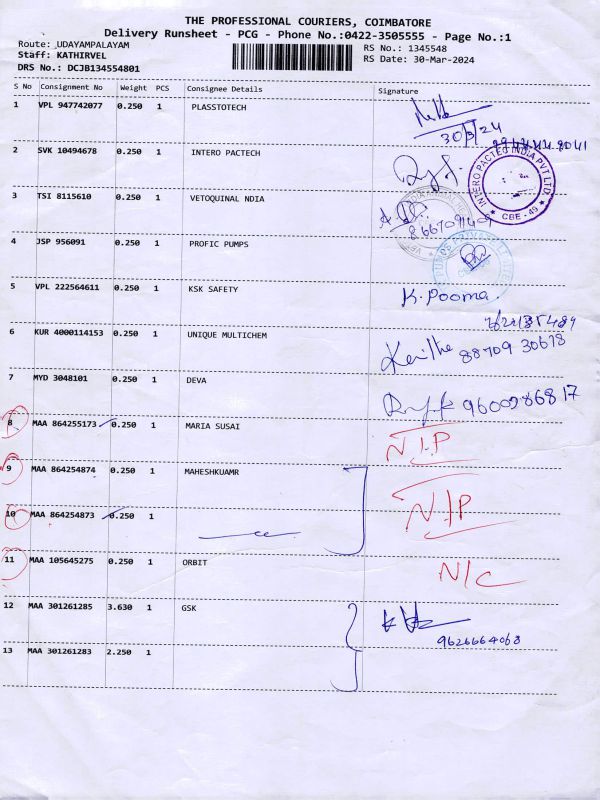 THE PROFESSIONAL COURIERS, COIMBATORE
Delivery Runsheet - PCG - Phone No.:0422-3505555 - Page No.:1
Route: UDAYAMPALAYAM
RS No.: 1345548
Staff: KATHIRVEL
RS Date: 30-Mar-2024
DRS No.: DCJB134554801
S No Consignment No Weight PCS Consignee Details Signature
1 VPL 947742077 0.250 1 PLASSTOTECH
30/3/24
2 SVK 10494678 0.250 1 INTERO PACTECH
INTERO PACTECH INDIA PVT LTD.
CBE - 49
3 TSI 8115610 0.250 1 VETOQUINAL NDIA
4 JSP 956091 0.250 1 PROFIC PUMPS
5 VPL 222564611 0.250 1 KSK SAFETY K. Pooma.
6 KUR 4000114153 0.250 1 UNIQUE MULTICHEM
88709 30678
7 MYD 3048101 0.250 1 DEVA
9600986817
8 MAA 864255173 0.250 1 MARIA SUSAI N/P
9 MAA 864254874 0.250 1 MAHESHKUAMR
10 MAA 864254873 0.250 1 N/P
11 MAA 105645275 0.250 1 ORBIT N/C
12 MAA 301261285 3.630 1 GSK
9626664068
13 MAA 301261283 2.250 1